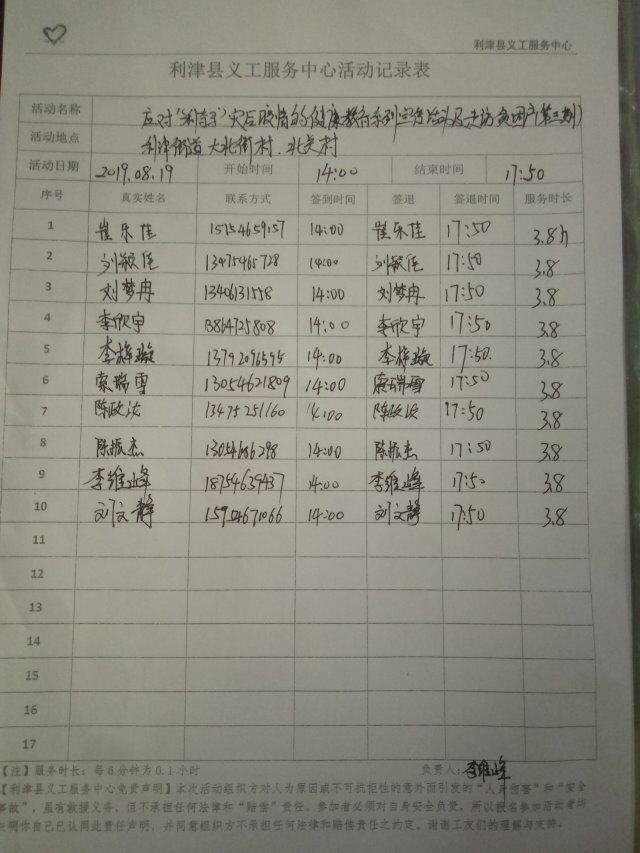 利津县义工服务中心
利津县义工服务中心活动记录表
活动名称 应对"利奇马"灾后疫情的健康教育系列宣传活动及走访贫困户(第三期)
活动地点 利津街道大北街村、北关村
活动日期 2019.08.19 开始时间 14:00 结束时间 17:50
序号 真实姓名 联系方式 签到时间 签退 签退时间 服务时长
1 崔乐佳 15154659157 14:00 崔乐佳 17:50 3.8h
2 刘敏佳 13475465728 14:00 刘敏佳 17:50 3.8
3 刘梦冉 13406131558 14:00 刘梦冉 17:50 3.8
4 李欣宇 13864725808 14:00 李欣宇 17:50 3.8
5 李梓璇 13792096595 14:00 李梓璇 17:50. 3.8
6 索瑞雪 13054621809 14:00 索瑞雪 17:50 3.8
7 陈政法 13475251160 14:00 陈政法 17:50 3.8
8 陈振杰 13054686298 14:00 陈振杰 17:50 3.8
9 李维峰 18754639437 14:00 李维峰 17:50 3.8
10 刘文静 15954671066 14:00 刘文静 17:50 3.8
11
12
13
14
15
16
17
【注】服务时长：每6分钟为0.1小时 负责人：李维峰
【利津县义工服务中心免责声明】本次活动组织方对人为原因或不可抗拒性的意外而引发的"人身伤害"和"安全
事故"，虽有救援义务，但不承担任何法律和"赔偿"责任。参加者必须对自身安全负责。所以报名参加活动者均
表明你自己已认同此责任声明，并同意组织方不承担任何法律和赔偿责任之约定。谢谢工友们的理解与支持。